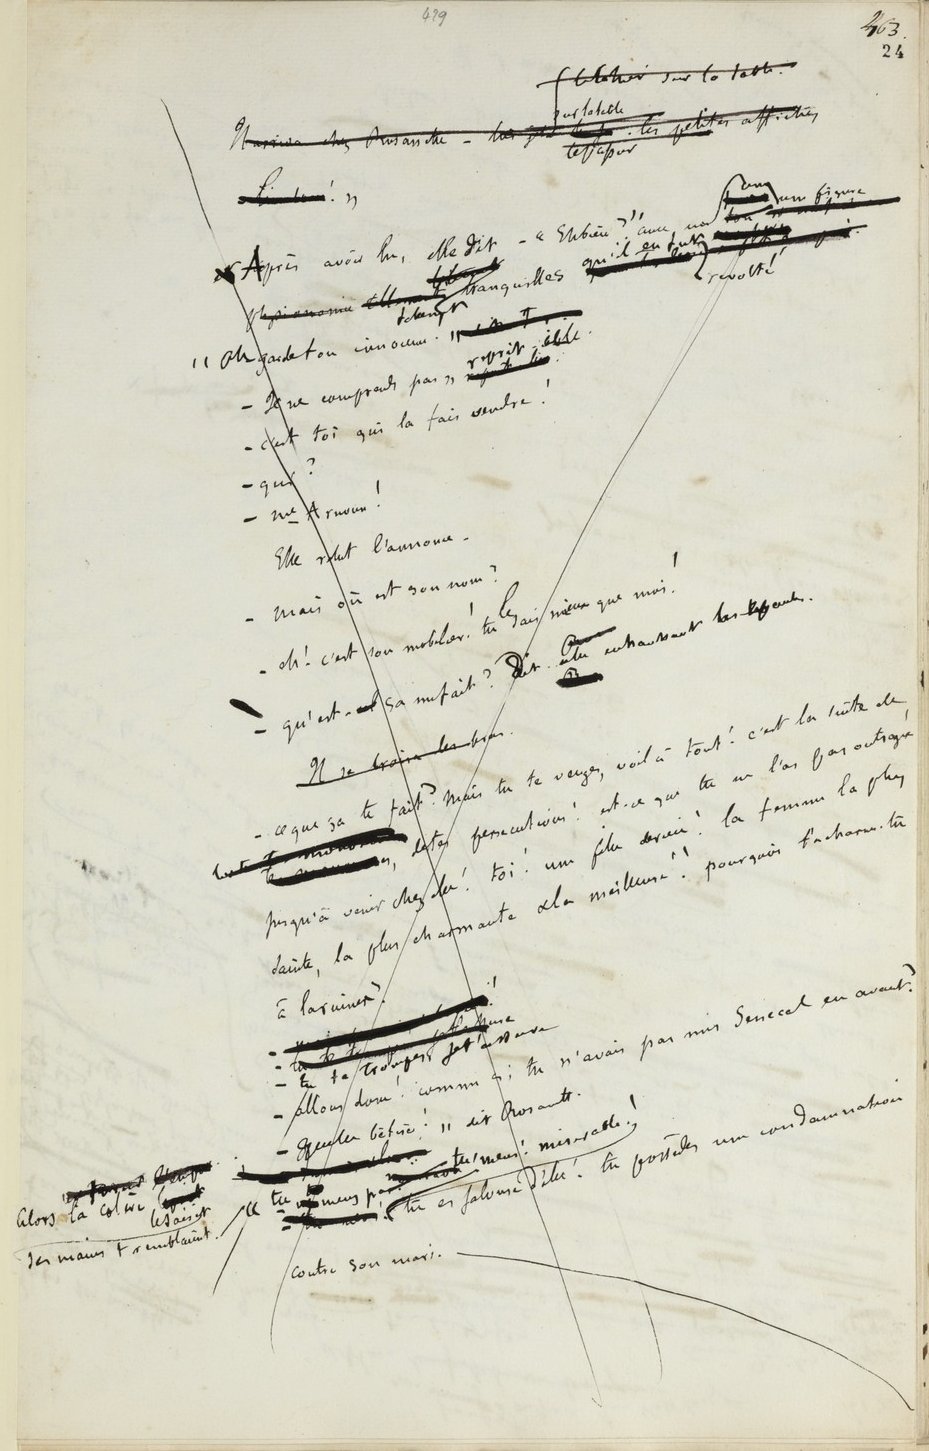 429
463.
24
sur la table.
sur la table
Il arriva chez Rosanette – les petites affiches
le papier
Après avoir lu, elle dit – « Eh bien ? » avec une figure
physionomie tellement tranquille qu'il en fut révolté
" Oh garde ton innocence. "
– Je ne comprends pas » reprit-elle.
– c'est toi qui la fais vendre !
– qui ?
– Me Arnoux !
Elle relut l'annonce –
– mais où est son nom ?
– eh ! c'est son mobilier ! tu le sais mieux que moi !
– qu'est-ce que ça me fait ? dit-elle en haussant les épaules.
Il se croisa les bras.
– ce que ça te fait ? mais tu te venges, voilà tout ! c'est la suite de
tes persécutions ! est-ce que tu ne l'as pas outragée
jusqu'à venir chez elle ! toi ! une fille de rien ! la femme la plus
sainte, la plus charmante & la meilleure ! pourquoi t'acharnes-tu
à la ruiner ?
– tu te trompes, je t'assure
– allons donc ! comme si tu n'avais pas mis Senecal en avant ?
– Quelle bêtise ! » dit Rosanette.
Alors la colère le saisit
ses mains tremblaient.
« tu mens ! misérable !
tu es jalouse d'elle ! tu possèdes une condamnation
contre son mari. –